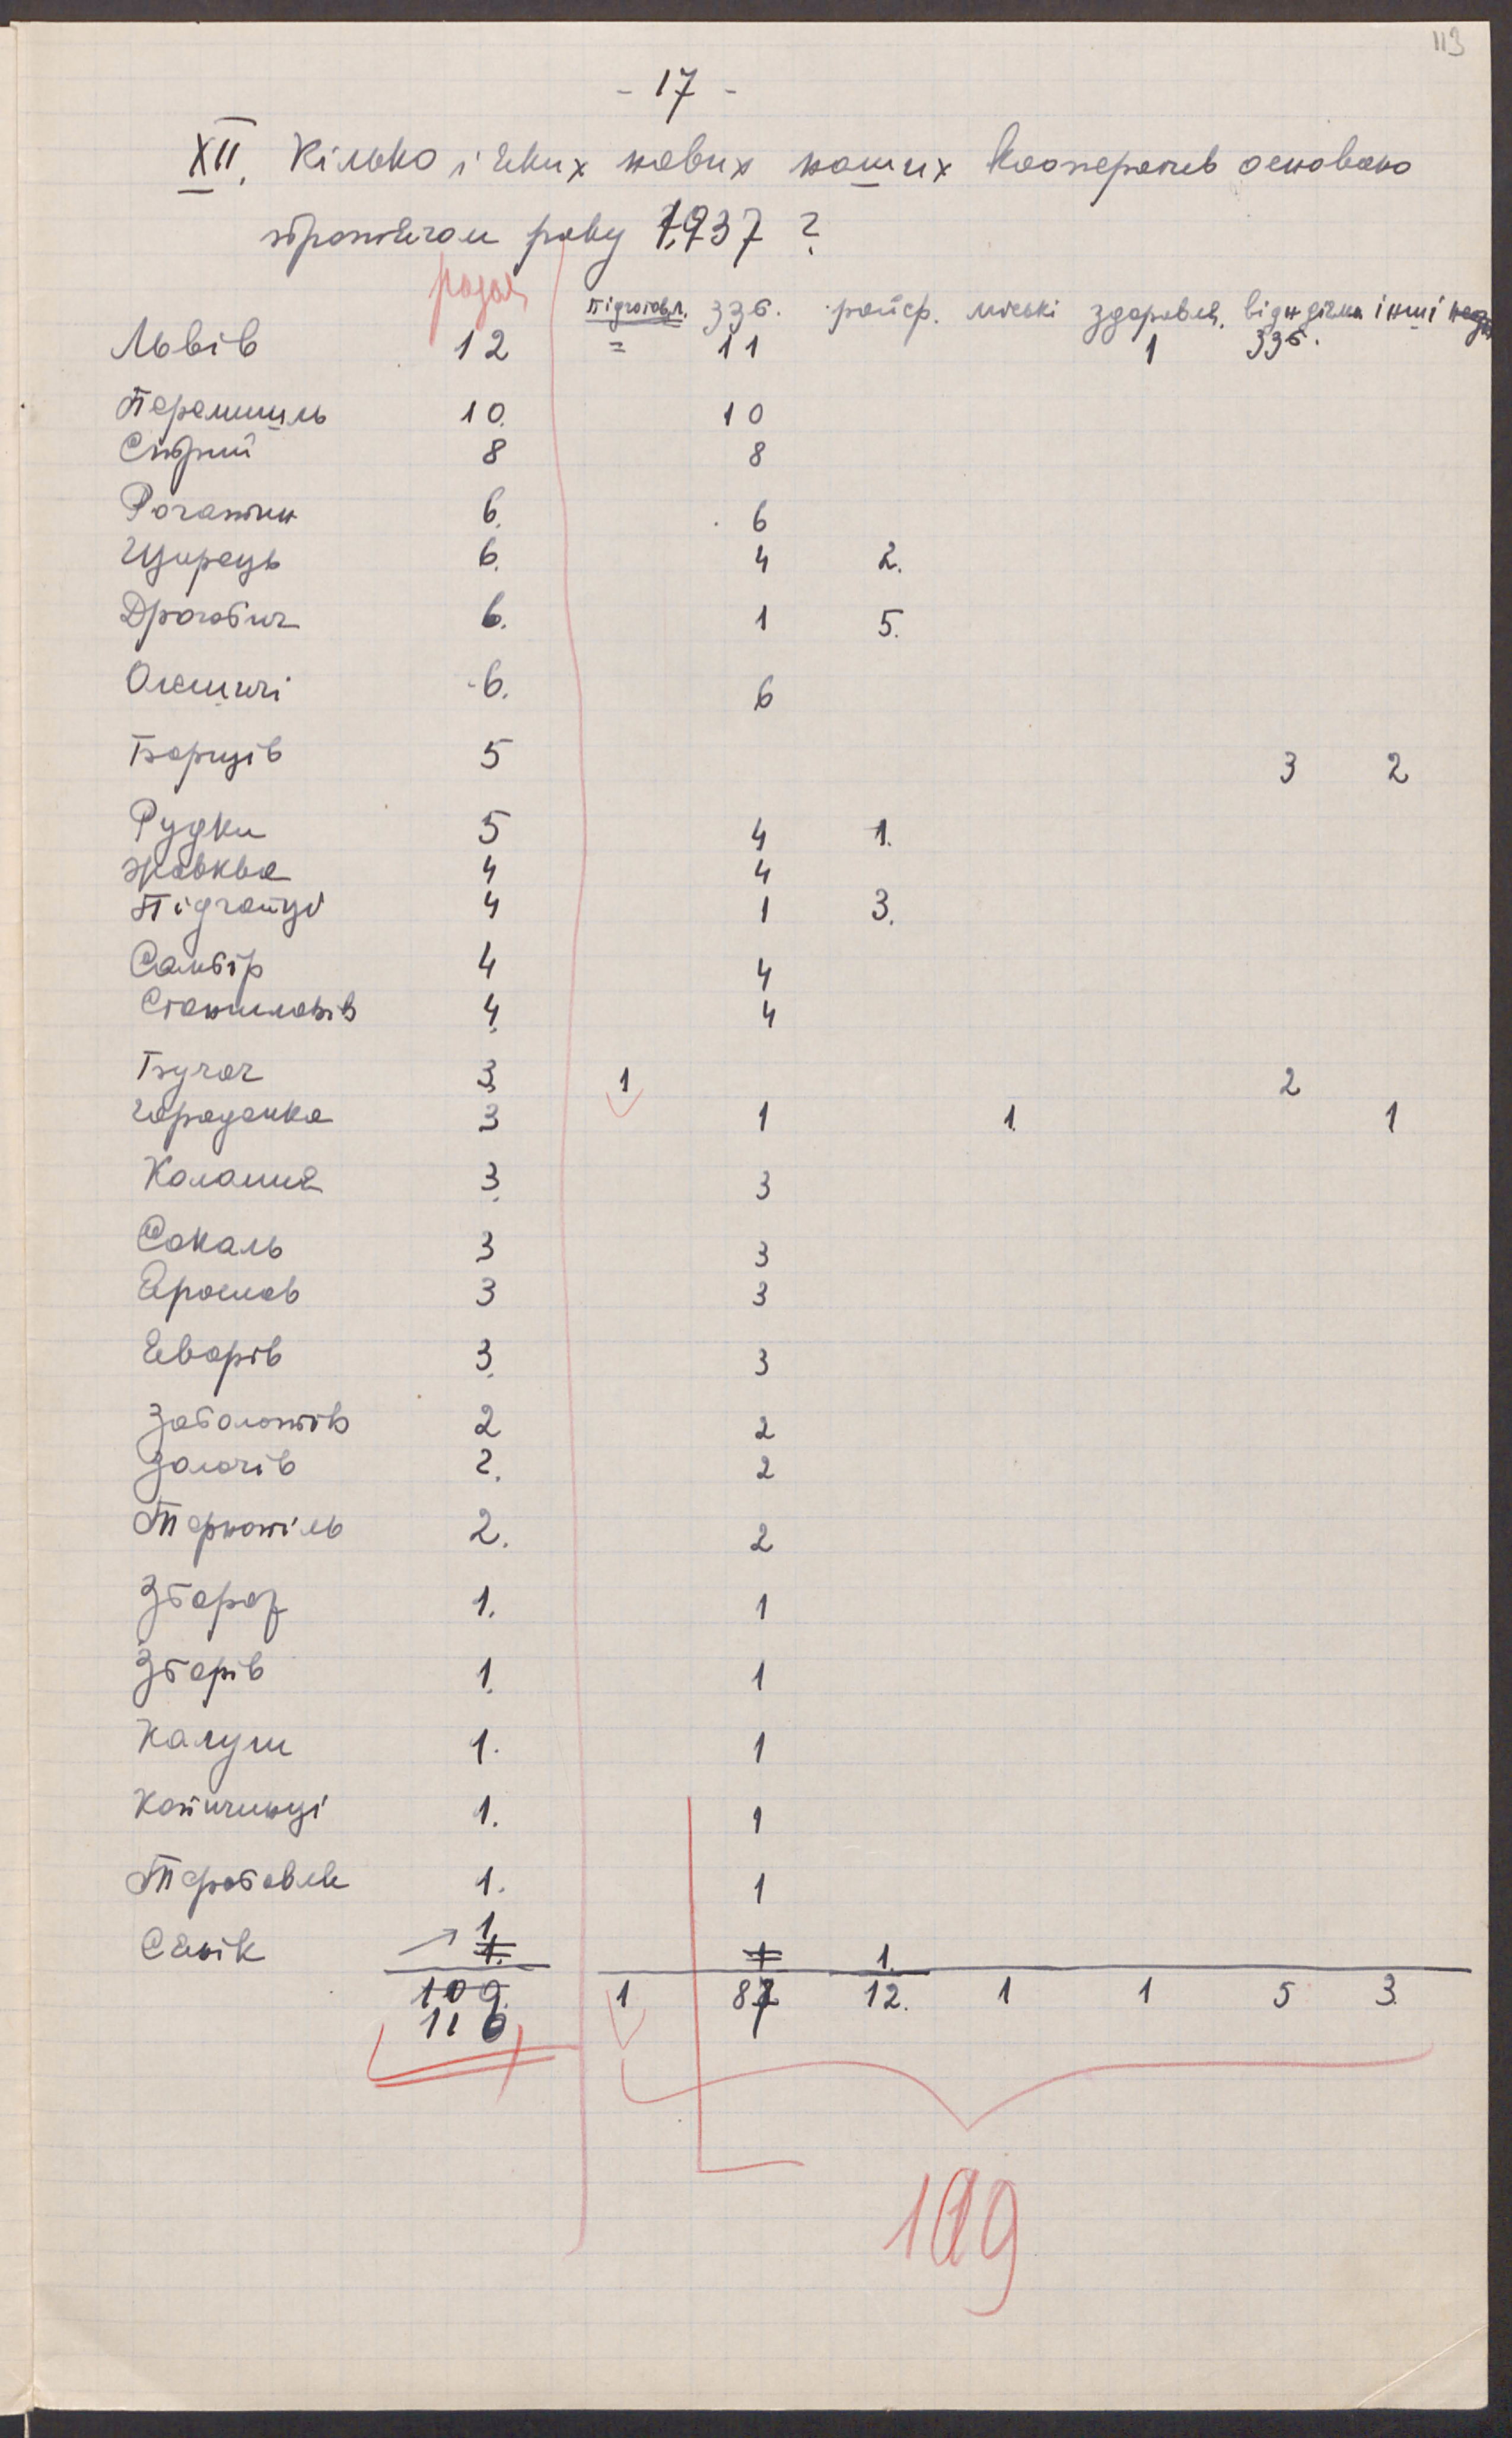 113
- 17 -
XII. Кілько і яких нових наших кооператив основано
протягом року 1937 ?
разом підготовл. ЗЗб. райср. міські здоровля, відндільн ЗЗб. інші
Львів 12 = 11 1
Перемишль 10. 10
Стрий 8 8
Рогатин 6. 6
Щирець 6. 4 2.
Дрогобич 6. 1 5.
Олешичі 6. 6
Борщів 5 3 2
Рудки 5 4 1.
Жовква 4 4
Підгайці 4 1 3.
Самбір 4 4
Станиславів 4. 4
Бучач 3 1 2
Городенка 3 1 1. 1
Коломия 3. 3
Сокаль 3 3
Ярослав 3 3
Яворів 3. 3
Заболотів 2 2
Золочів 2. 2
Тернопіль 2. 2
Збараж 1. 1
Зборів 1. 1
Калуш 1. 1
Копичинці 1. 1
Теребовля 1. 1
1.
Сянік 1. 1 1.
109. 1 87 12. 1 1 5 3.
110
109